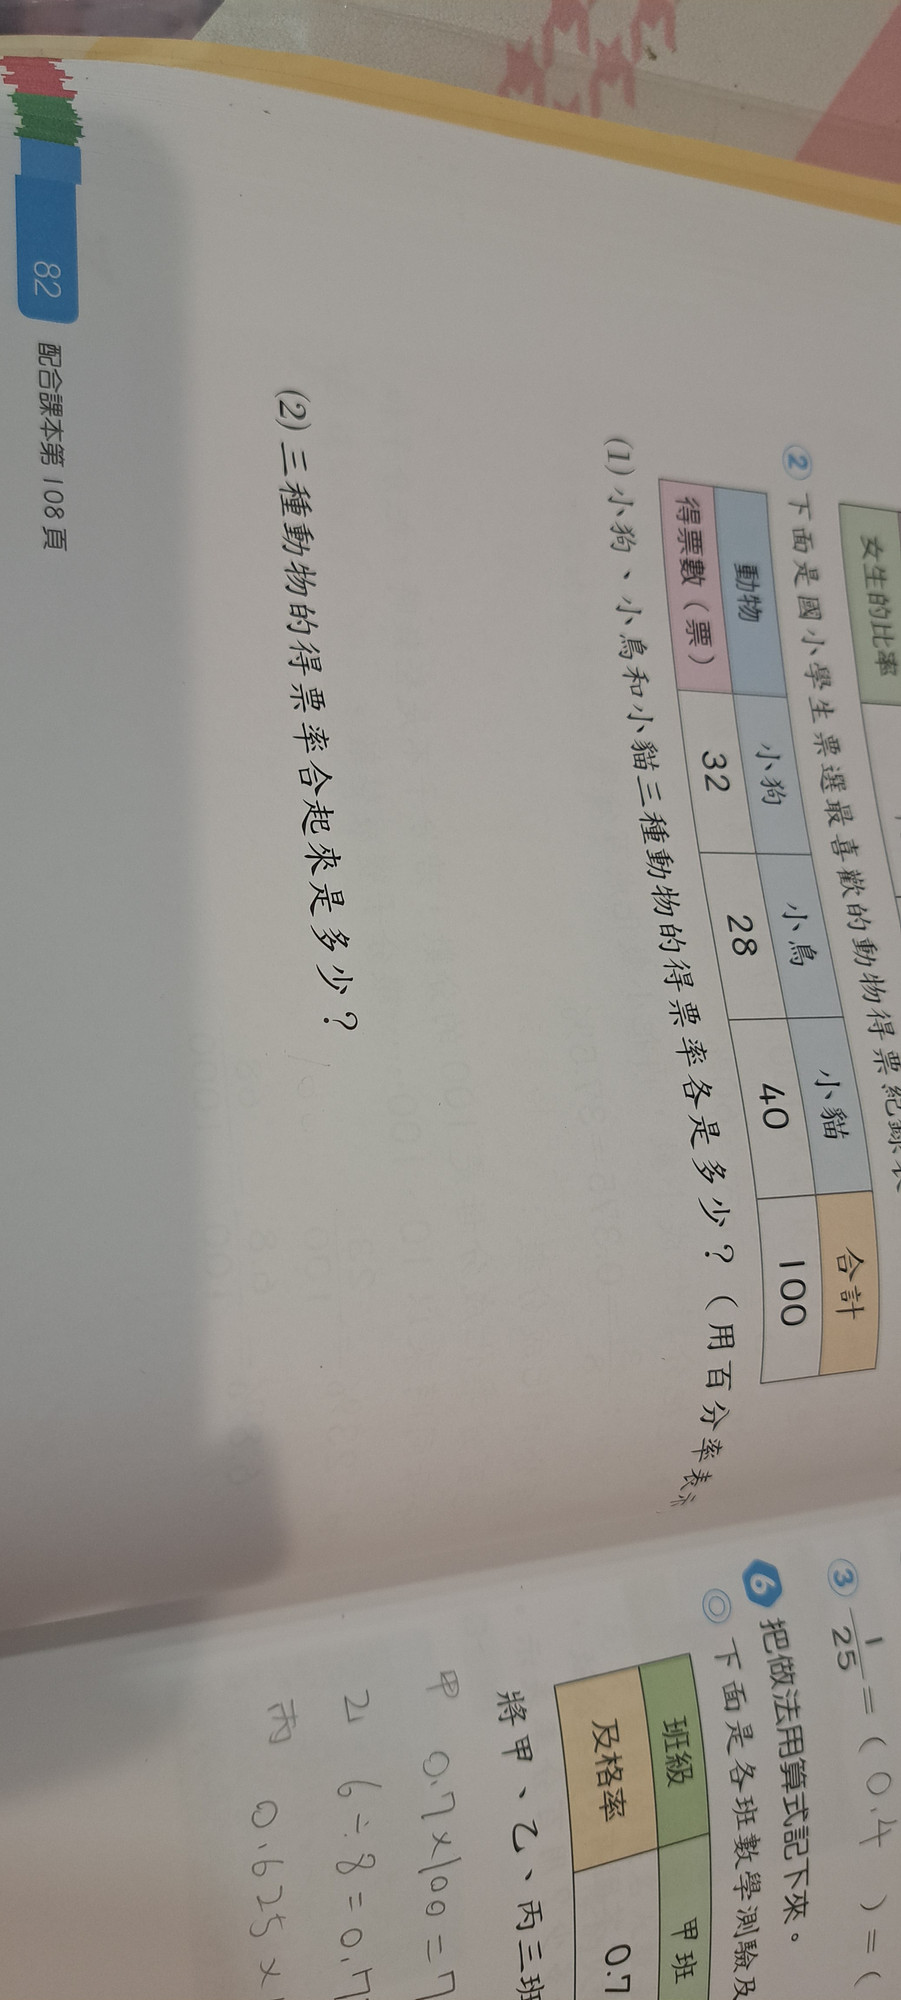 女生的比率
② 下面是國小學生票選最喜歡的動物得票紀錄表
動物 小狗 小鳥 小貓 合計
得票數(票) 32 28 40 100
(1) 小狗、小鳥和小貓三種動物的得票率各是多少?(用百分率表示
(2) 三種動物的得票率合起來是多少?
82 配合課本第108頁
③ 1/25=( 0.4 )=(
6 把做法用算式記下來。
◎ 下面是各班數學測驗及
班級 甲班
及格率 0.7
將甲、乙、丙三班
甲 0.7×100=7
乙 6÷8=0.7
丙 0.625×